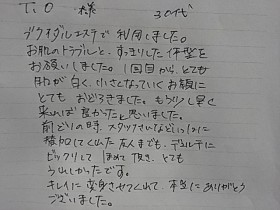 T.O 様 30代
ブライダルエステで利用しました。
お肌のトラブルと、すっきりした体型を
お願いしました。1回目から、とても
肌が白く、小さくなっていくお顔に
とてもおどろきました。もう少し早く
来れば良かったと思いました。
前どりの時、スタッフさんなどに
参加してくれた友人までも、デコルテに
ビックリしてほめて頂き、とても
うれしかったです。
キレイに変身させてくれて、本当にありがとう
ございました。